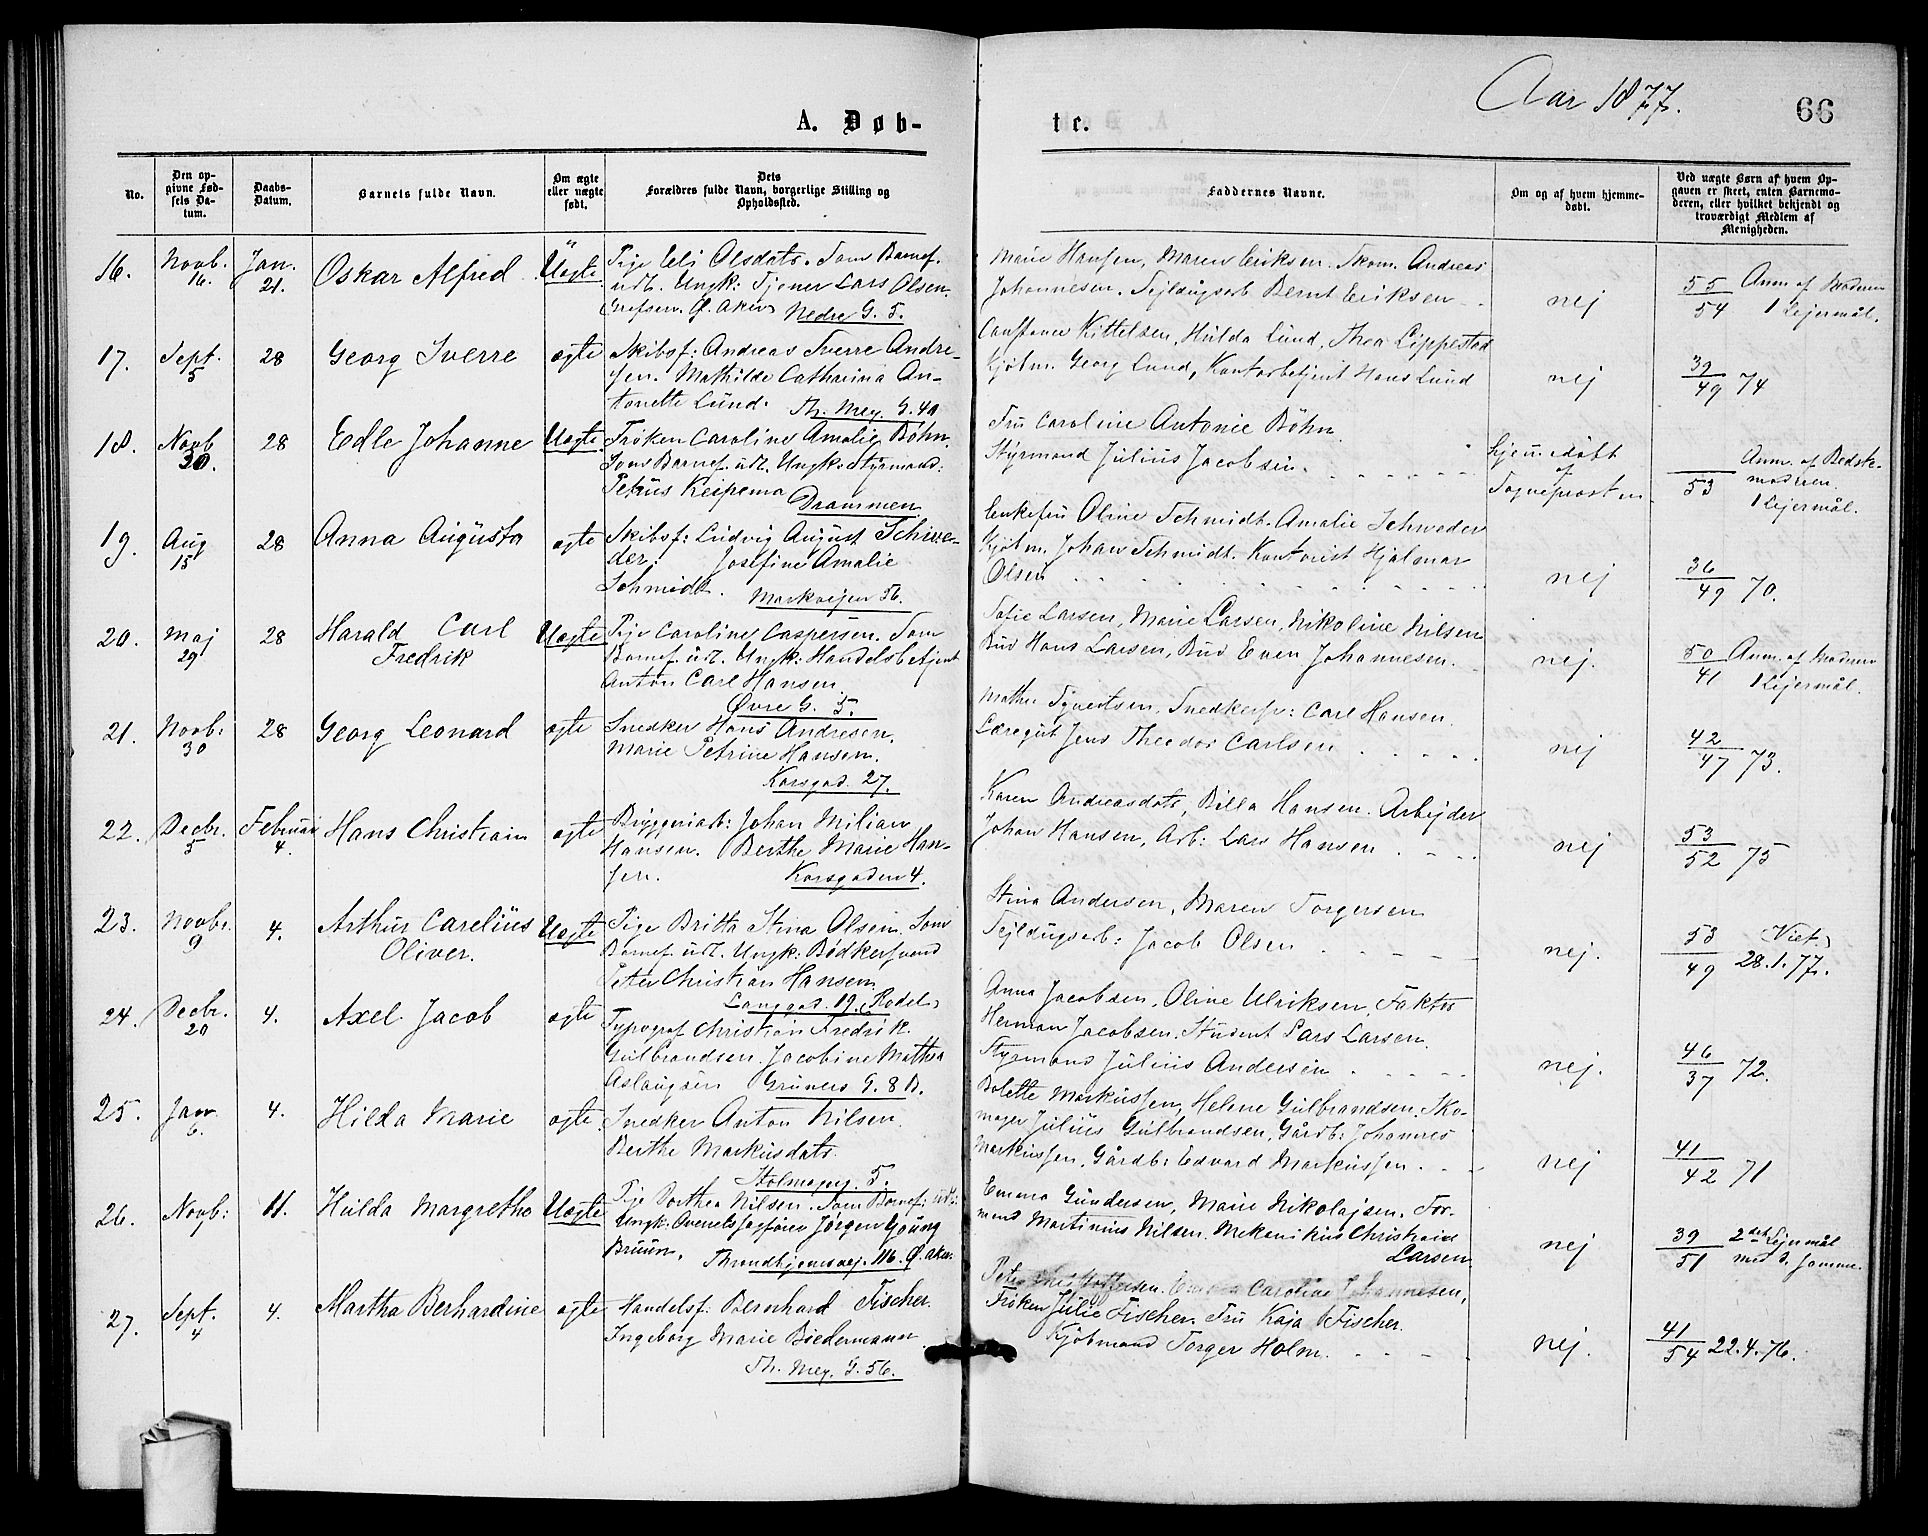 Aar 1877.
66
A. Døb-
te.
No.
Den op-
givne Fød-
sels Da-
tum.
Daabs-
Datum.
Barnets fulde Navn.
Om ægte
eller uægte
født.
Dets
Forældres fulde Navn, borgerlige Stilling og
Opholdssted.
Faddernes Navne.
Om og af hvem hjemme-
døbt.
Ved uægte Børn af hvem Op-
gaven er skeet, enten Barnemo-
deren, eller hvilket bekjendt og
troværdigt Medlem af
Menigheden.
16. Novb. 16. Jan. 21. Oskar Alfred Uægte
Pige Eli Olsdatr. Som Barnef.
udl. Ungk: Tjener Lars Olsen
Grefsen. Ø. Aker Nedre G. 5.
Marie Hansen, Maren Eriksen. Skom. Andreas
Johannesen. Sejldugsarb Bernt Eriksen
nej
55/54 Anm. af Moderen
1 Lejermål.
17. Sept. 5 28 Georg Sverre ægte
Skibsf: Andreas Sverre Andre-
sen. Mathilde Catharina An-
tonette Lund. Th. Mey. G. 40
Constance Kittelsen, Hulda Lund, Thea Lippestad
Kjøbm. Georg Lund, Kontorbetjent Hans Lund
nej
39/49 74
18. Novb 20. 28 Edle Johanne Uægte
Frøken Caroline Amalie Bøhn.
Som Barnef. udl. Ungk: Styrmand:
Petrus Keipema Drammen
Fru Caroline Antonie Bøhn
Styrmand Julius Jacobsen.
hjemmedøbt
af
Sogneprasten
53 Anm. af Bedste-
moderen.
1 Lejermål.
19. Aug 15 28 Anna Augusta ægte
Skibsf: Ludvig August Schwe-
der. Josefine Amalie
Schmidt. Markvejen 56.
Enkefru Oline Schmidt. Amalie Schweder
Kjøbm. Johan Schmidt. Kontorist Hjalmar
Olsen
nej
36/49 70.
20. Maj 29 28 Harald Carl
Fredrik Uægte
Pige Caroline Caspersen. Som
Barnef. udl. Ungk: Handelsbetjent
Anton Carl Hansen
Øvre G. 5.
Sofie Larsen, Marie Larsen, Nikoline Nilsen
Bud Hans Larsen, Bud Even Johannesen.
nej.
50/41 Anm. af Moderen
1 Lejermål.
21. Novb: 30 28 Georg Leonard ægte
Snedker Hans Andresen.
Marie Petrine Hansen.
Korsgad. 27.
Mathea Syvertsen, Snedkersv: Carl Hansen.
Læregut Jens Theodor Carlsen
nej
42/47 73.
22. Decbr. 5 Februar 4. Hans Christian ægte
Bryggeriarb: Johan Milian
Hansen. Berthe Marie Han-
sen. Korsgaden 4.
Karen Andreasdatr, Billa Hansen. Arbejder
Johan Hansen, Arb: Lars Hansen
nej
53/52 75
23. Novbr. 9 4. Arthur Carelius
Oliver. Uægte
Pige Britta Stina Olsen. Som
Barnef. udl. Ungk: Bødkersvend
Peter Christian Hansen
Langgad. 19. (Rodel)
Stina Andersen, Maren Torgersen
Sejldugsarb: Jacob Olsen
nej.
53/49 (Viet)
28.1.77.
24. Decbr. 20 4. Axel Jacob ægte
Typograf Christian Fredrik
Gulbrandsen. Jacobine Mathea
Aslaugsen Gruners G. 8 B.
Anna Jacobsen, Oline Ulriksen, Faktor
Herman Jacobsen. Student Lars Larsen.
Styrmand Julius Andersen
nej.
46/37 72.
25. Jan 6. 4. Hilda Marie ægte
Snedker Anton Nilsen.
Berthe Markusdatr.
Stolmagerg. 5.
Bolette Markussen, Helene Gulbrandsen. Sko-
mager Julius Gulbrandsen, Gårdb: Johannes
Markussen, Gårdb: Edvard Markussen
nej
41/42 71
26. Novb: 11. Hulda Margrethe Uægte
Pige Dorthea Nilsen. Som Barnef: udl:
Ungk: Jørgen Young
Bruun. Throndhjemsvej. 116. Ø. Aker
Emma Gundersen, Marie Nikolajsen. For-
mand Martinius Nilsen. Mekanikus Christian
Larsen
nej
39/51 2det Lejermål
med d. samme.
27. Sept. 4 4. Martha Berhardine ægte
Handelsf: Bernhard Fischer.
Ingeborg Marie Biedermann
Th. Mey. G. 56.
Caroline Johannesen,
Frøken Julie Fischer. Fru Kaja Fischer.
Kjøbmand Torger Holm.
nej.
41/54 22.4.76.